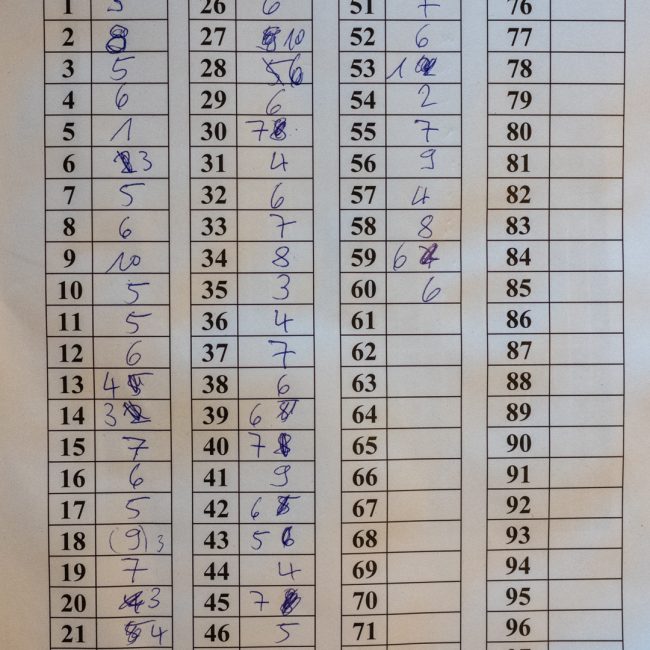 1 5 26 6 51 7 76
2 8 27 10 52 6 77
3 5 28 6 53 1 78
4 6 29 6 54 2 79
5 1 30 7 55 7 80
6 3 31 4 56 9 81
7 5 32 6 57 4 82
8 6 33 7 58 8 83
9 10 34 8 59 6 84
10 5 35 3 60 6 85
11 5 36 4 61 86
12 6 37 7 62 87
13 4 38 6 63 88
14 3 39 6 64 89
15 7 40 7 65 90
16 6 41 9 66 91
17 5 42 6 67 92
18 (9) 3 43 5 68 93
19 7 44 4 69 94
20 3 45 7 70 95
21 4 46 5 71 96